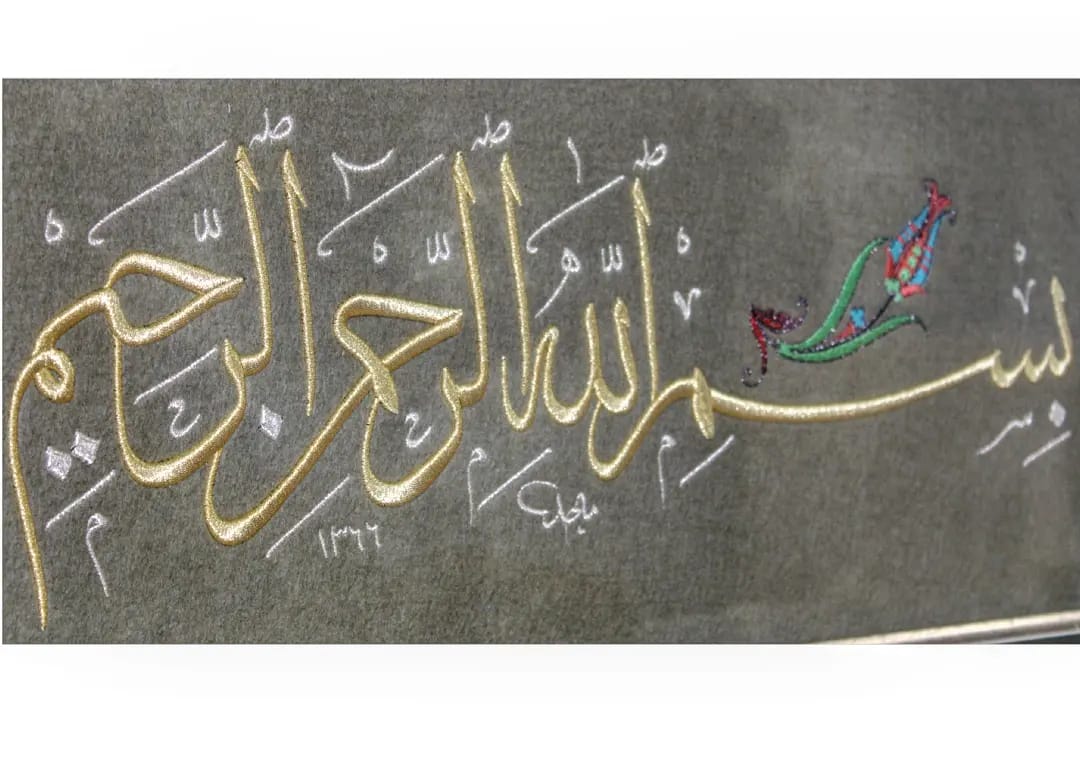 بِسْمِ اللّٰهِ الرَّحْمٰنِ الرَّحِيْمِ
ماجد
١٣٦٦